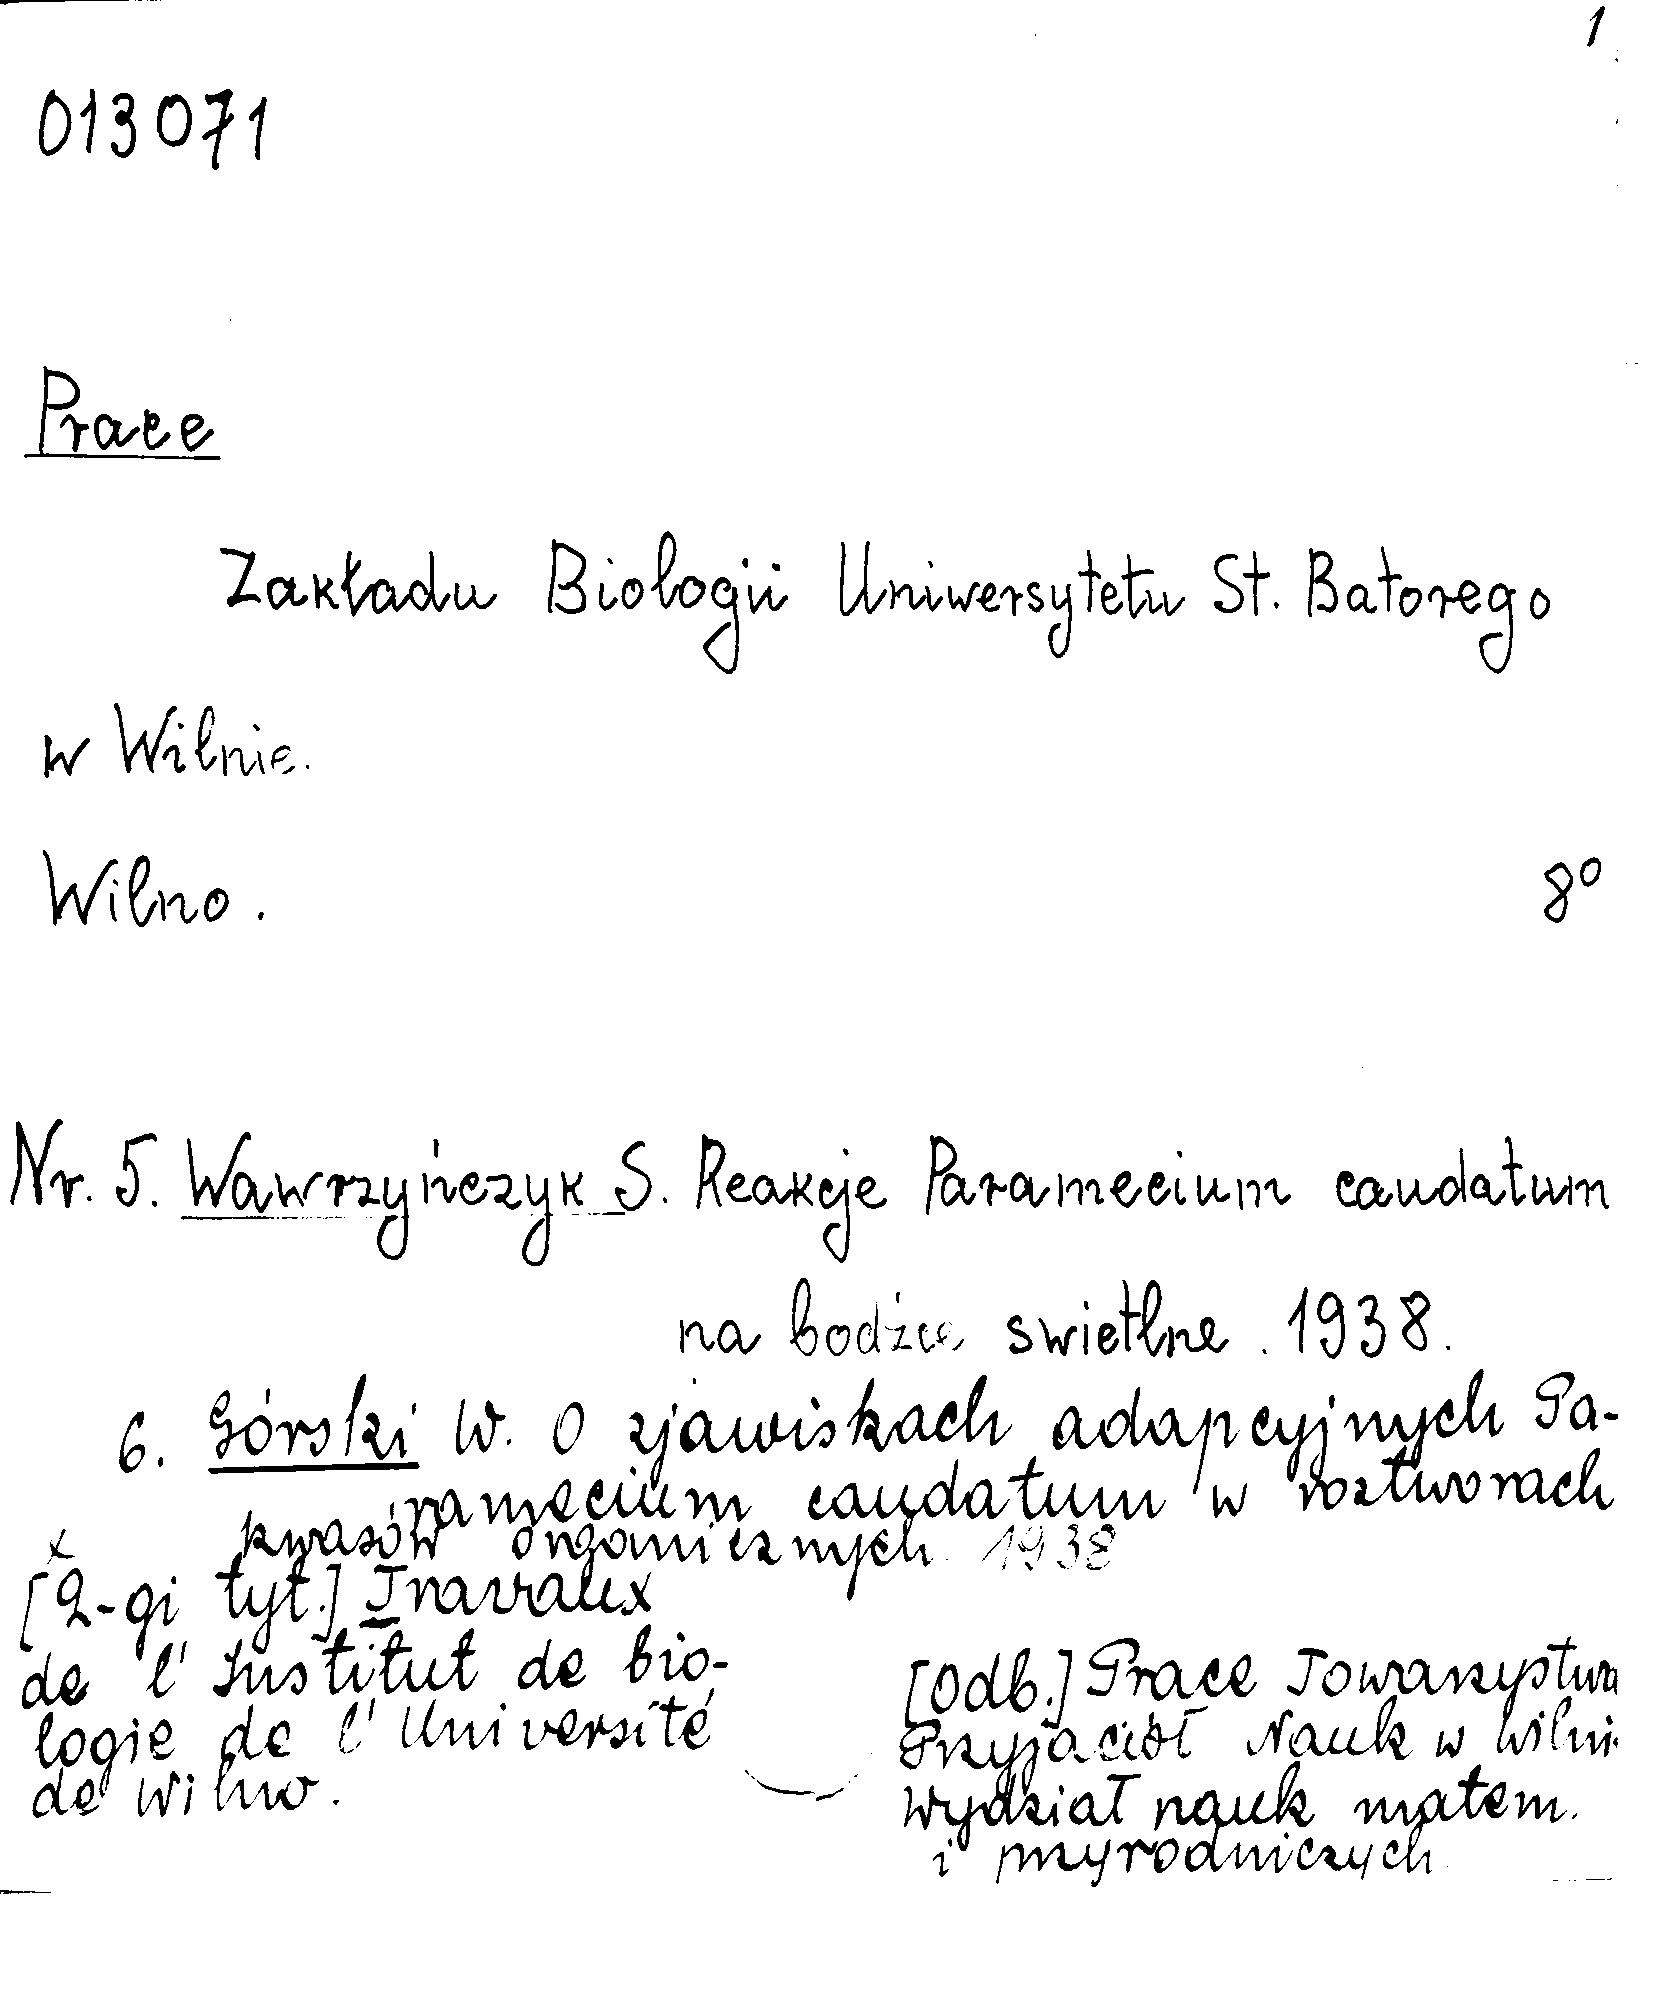 1
013071
Prace
Zakładu Biologii Uniwersytetu St. Batorego
w Wilnie.
Wilno. 8°
Nr. 5. Wawrzyńczyk S. Reakcje Paramecium caudatum
na bodźce swietlne. 1938.
6. Górski W. O zjawiskach adapcyjnych Pa-
ramecium caudatum w roztworach
kwasów organicznych 1938
x
[2-gi tyt.] Travaux
de l'Institut de bio-
logie de l'Université
de Wilno.
[Odb.] Prace Towarzystwa
Przyjaciół Nauk w Wilni
Wydział nauk matem.
i przyrodniczych